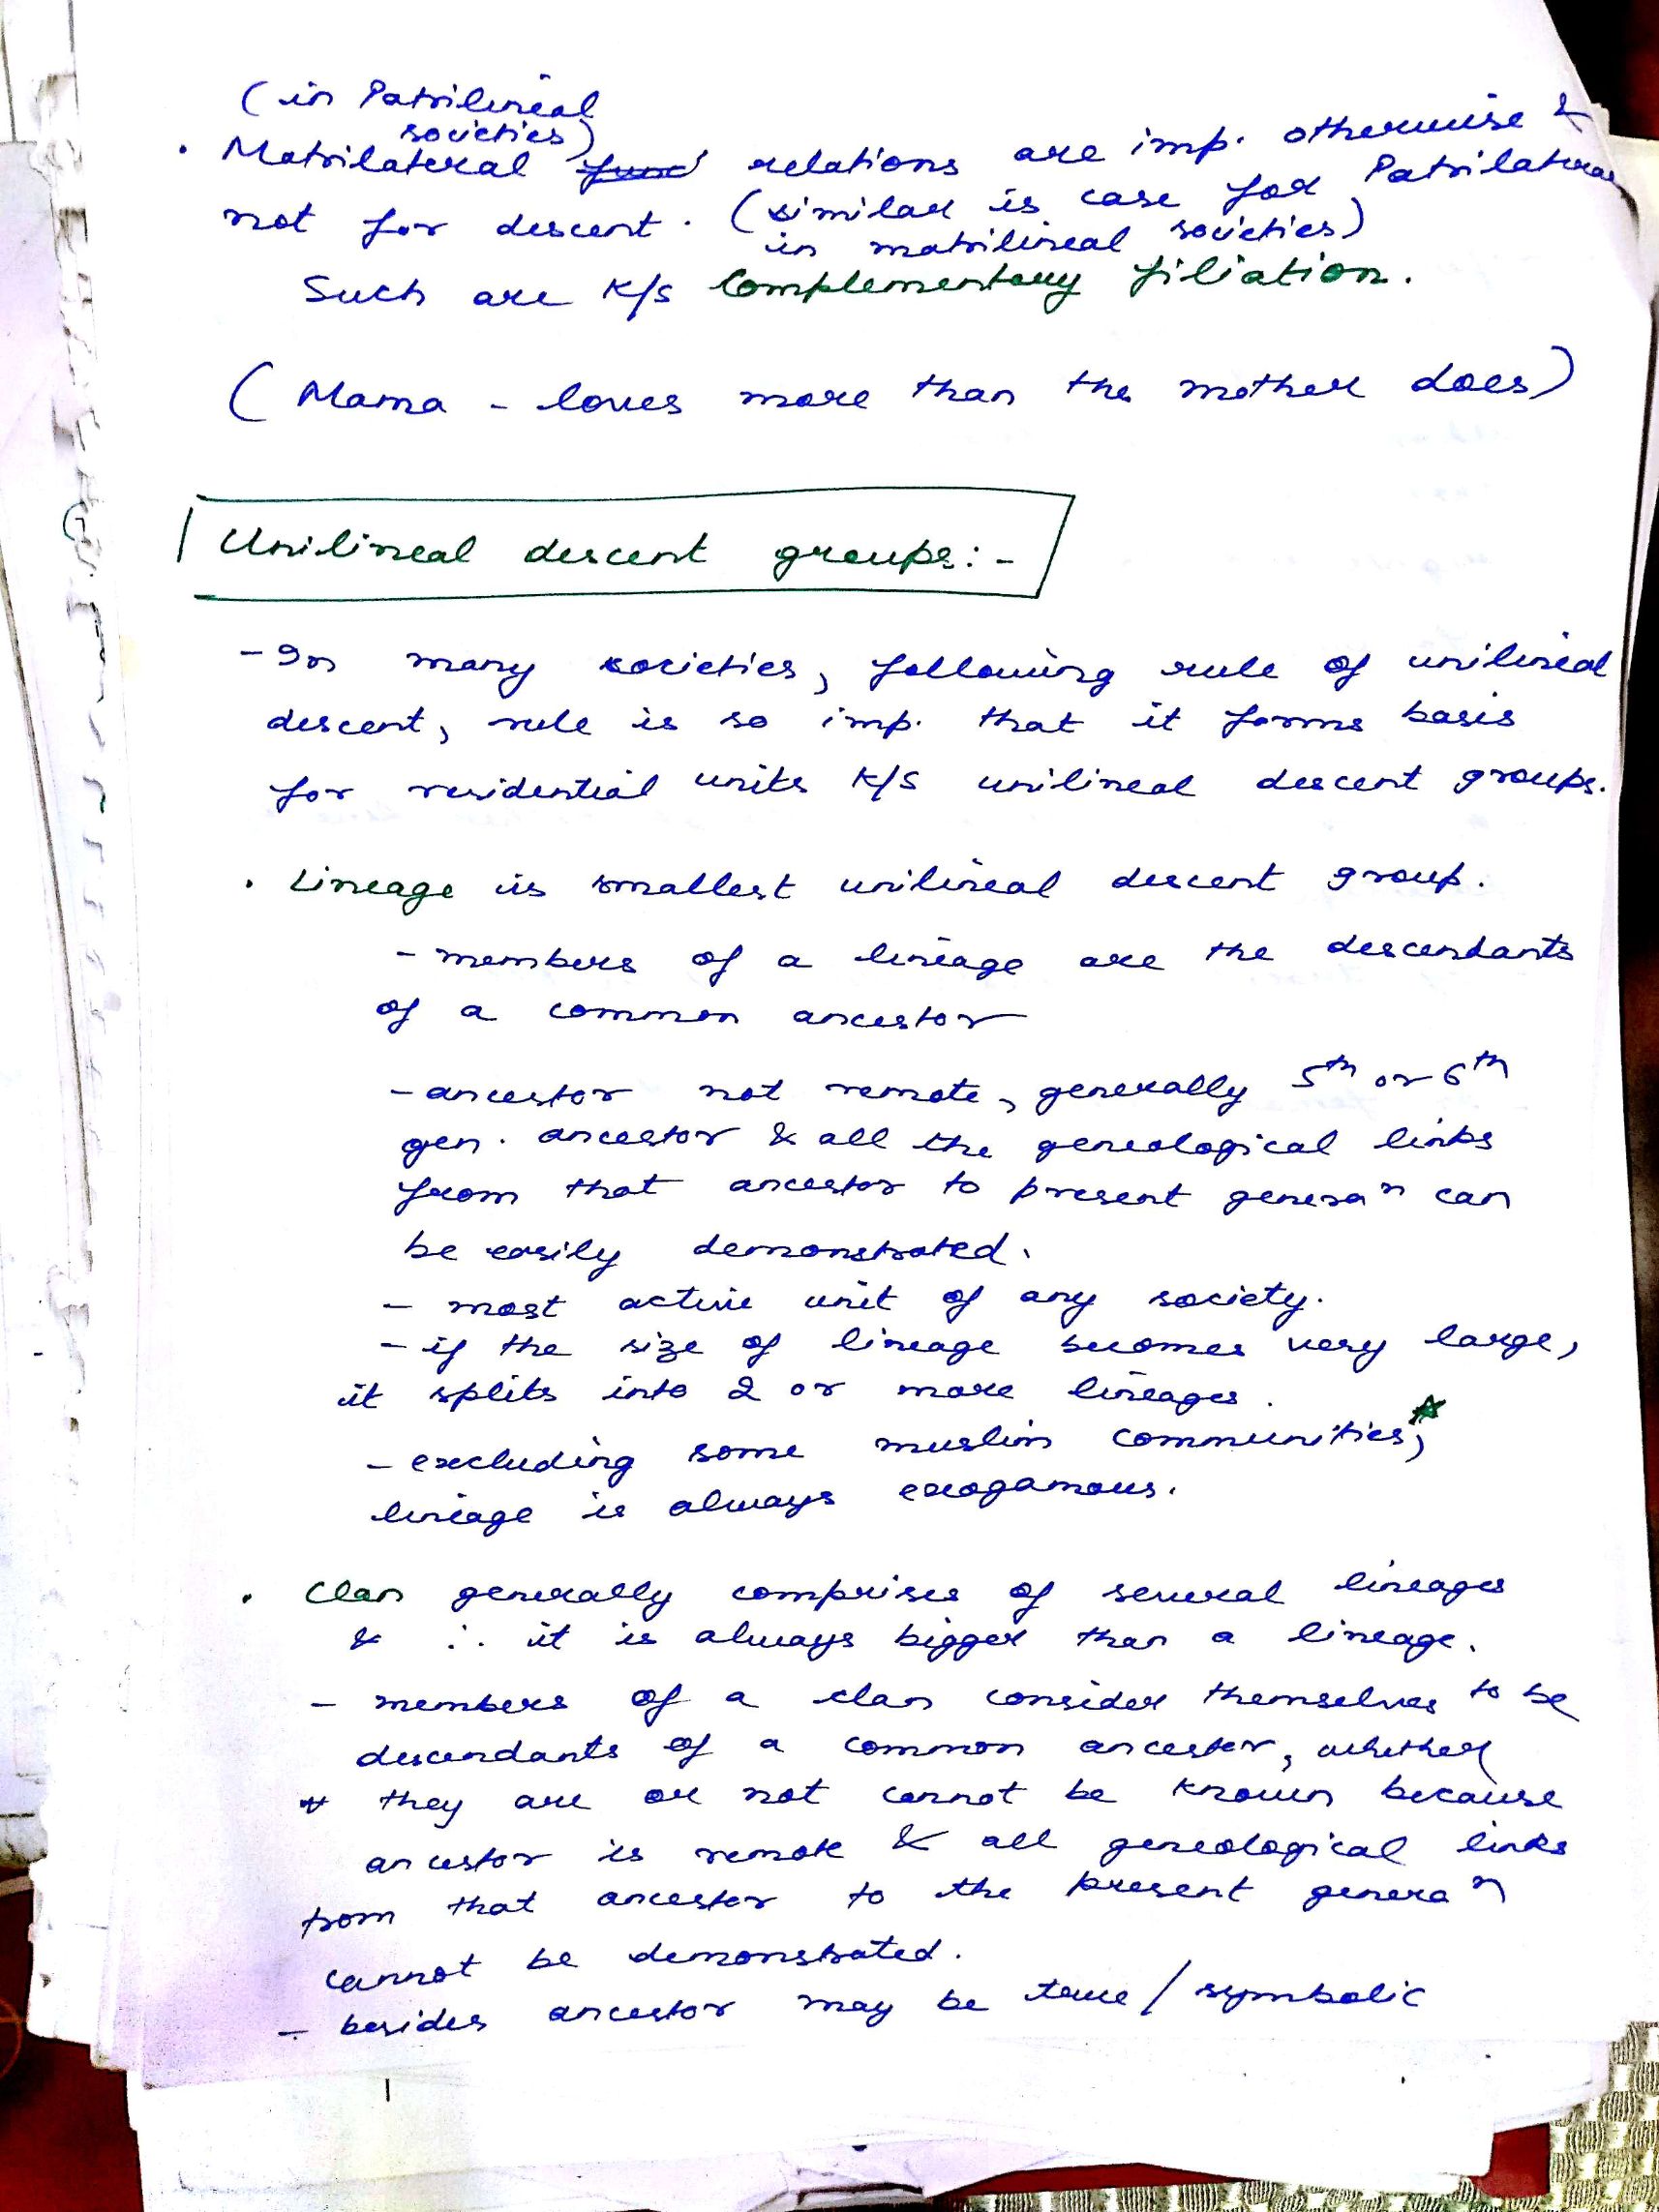 (in Patrilineal
societies)
. Matrilateral func relations are imp. otherwise &
not for descent. (similar is case for Patrilateral
in matrilineal societies)
Such are K/s Complementary filiation.
( Mama - loves more than the mother does)
Unilineal descent groups:-
- In many societies, following rule of unilineal
descent, rule is so imp. that it forms basis
for residential units K/s unilineal descent groups.
. Lineage is smallest unilineal descent group.
- members of a lineage are the descendants
of a common ancestor
- ancestor not remote, generally 5th or 6th
gen. ancestor & all the geneological links
from that ancestor to present genera n can
be easily demonstrated.
- most active unit of any society.
- if the size of lineage becomes very large,
it splits into 2 or more lineages.
- excluding some muslim communities,
lineage is always exogamous.
. Clan generally comprises of several lineages
& ∴ it is always bigger than a lineage.
- members of a clan consider themselves to be
descendants of a common ancestor, whether
they are or not cannot be known because
ancestor is remote & all geneological links
from that ancestor to the present genera n
cannot be demonstrated.
- besides ancestor may be true / symbolic